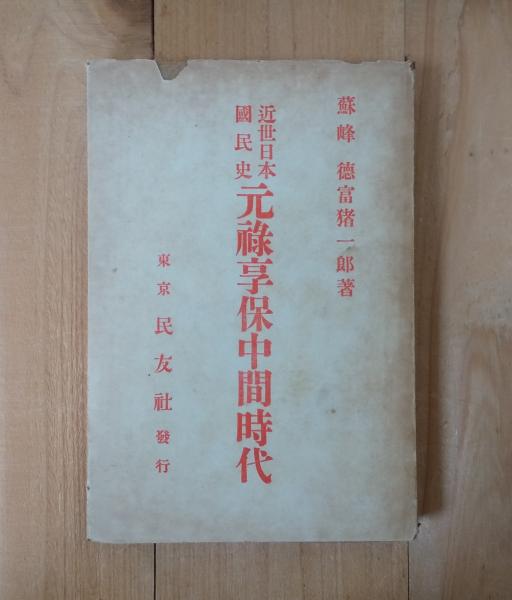 蘇峰 德富猪一郎著
近世日本
國民史
元祿享保中間時代
東京 民友社發行